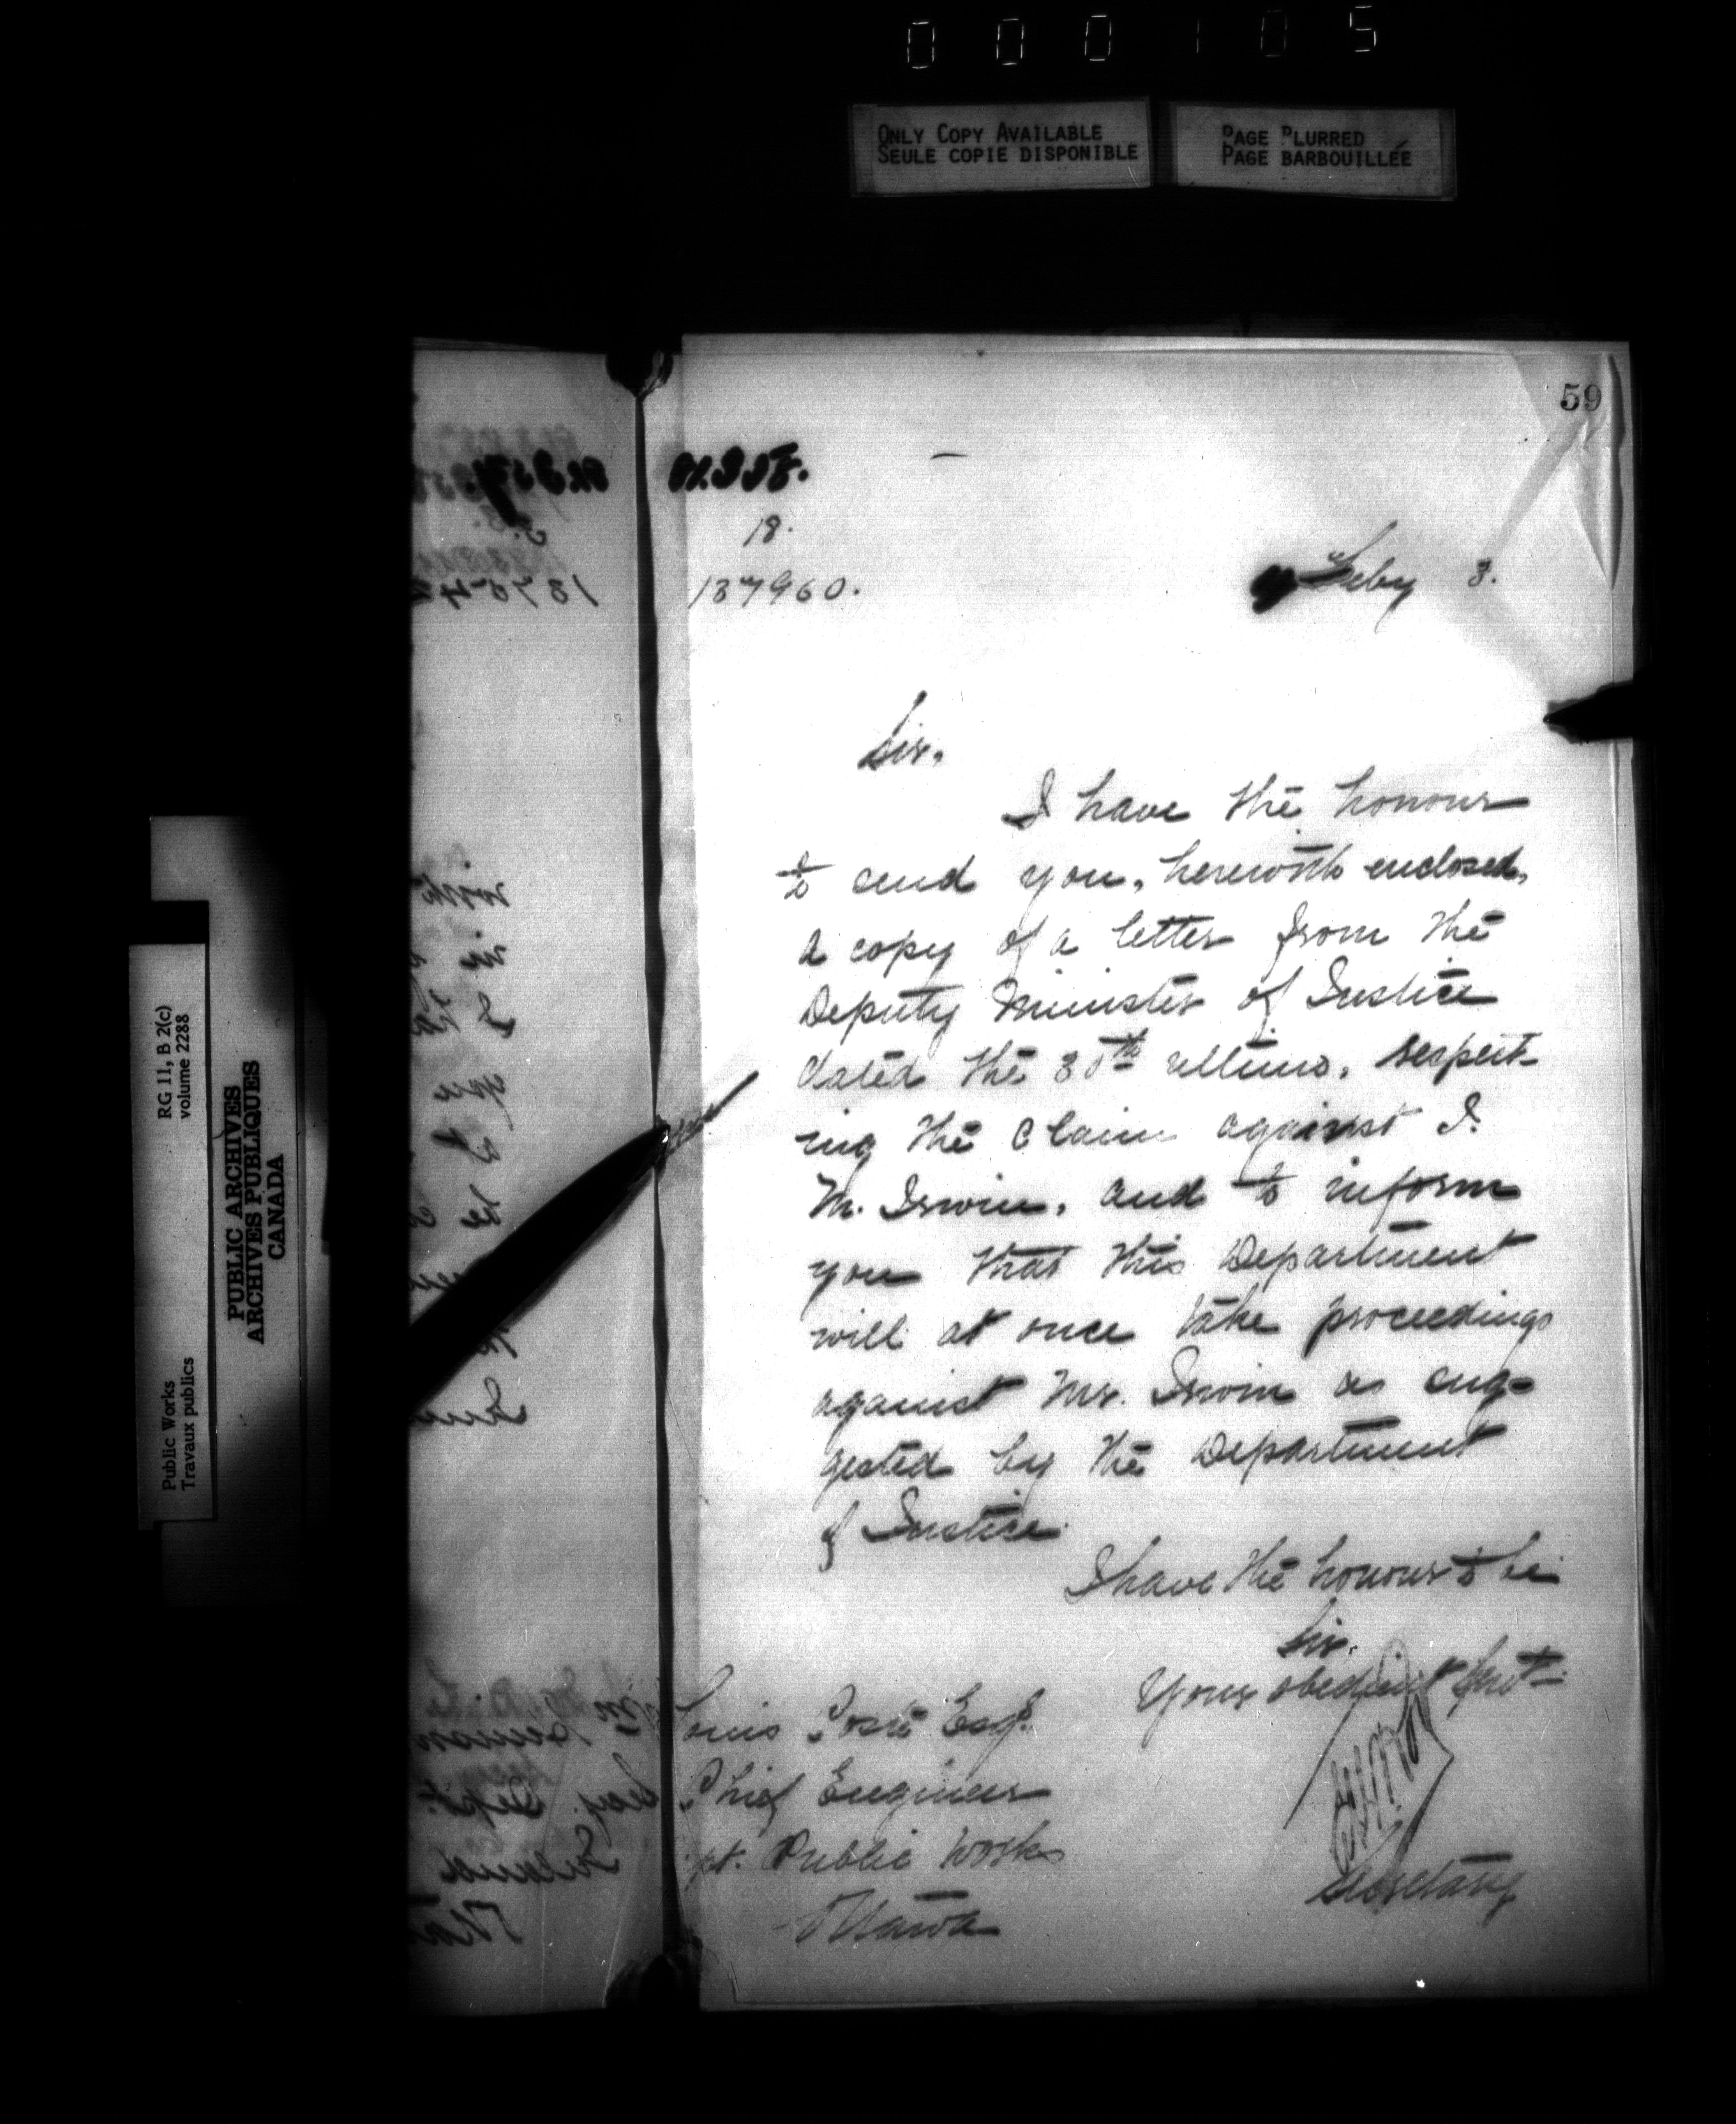 000105
ONLY COPY AVAILABLE
SEULE COPIE DISPONIBLE
PAGE BLURRED
PAGE BARBOUILLÉE
59
18.
137960.
Feby 3.
Sir,
I have the honour
to send you, herewith enclosed,
a copy of a letter from the
Deputy Minister of Justice
dated the 30th ultimo, respect-
ing the claim against I.
M. Irwin, and to inform
you that this Department
will at once take proceedings
against Mr. Irwin as sug-
gested by the Department
of Justice.
I have the honour to be
Sir,
Your obedient Servt
Secretary
Louis Coste Esq.
Chief Engineer
pt. Public Works
Ottawa
RG 11, B 2(c)
volume 2288
Public Works
Travaux publics
PUBLIC ARCHIVES
ARCHIVES PUBLIQUES
CANADA